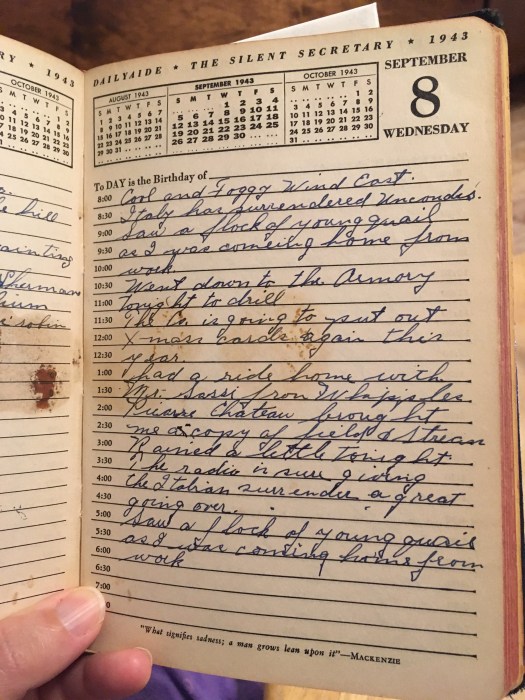 RY ★ 1943
DAILYAIDE ★ THE SILENT SECRETARY ★ 1943
OCTOBER 1943
AUGUST 1943
S M T W T F S
1 2 3 4 5 6 7
8 9 10 11 12 13 14
15 16 17 18 19 20 21
22 23 24 25 26 27 28
29 30 31
SEPTEMBER 1943
S M T W T F S
1 2 3 4
5 6 7 8 9 10 11
12 13 14 15 16 17 18
19 20 21 22 23 24 25
26 27 28 29 30
OCTOBER 1943
S M T W T F S
1 2
3 4 5 6 7 8 9
10 11 12 13 14 15 16
17 18 19 20 21 22 23
24 25 26 27 28 29 30
31
SEPTEMBER
8
WEDNESDAY
To DAY is the Birthday of
8:00 Cool and Foggy Wind East.
8:30 Italy has surrendered Uncondis.
9:00 Saw a flock of young quail
9:30 as I was comeing home from
10:00 work.
10:30 Went down to the Armory
11:00 tonight to drill
11:30 The Co. is going to put out
12:00 X-mass cards again this
12:30 year.
1:00 I had a ride home with
1:30 Mr. Sassi, ron Whipples
2:00 Pierre Chateau brought
2:30 me a copy of field & Stream
3:00 Rained a little tonight
3:30 The radio is sure giving
4:00 the Italian surrender a great
4:30 going over.
5:00 Saw a flock of young quails
5:30 as I was coming home from
6:00 work
6:30
7:00
"What signifies sadness; a man grows lean upon it"—MACKENZIE
hill
ainting
Sherman